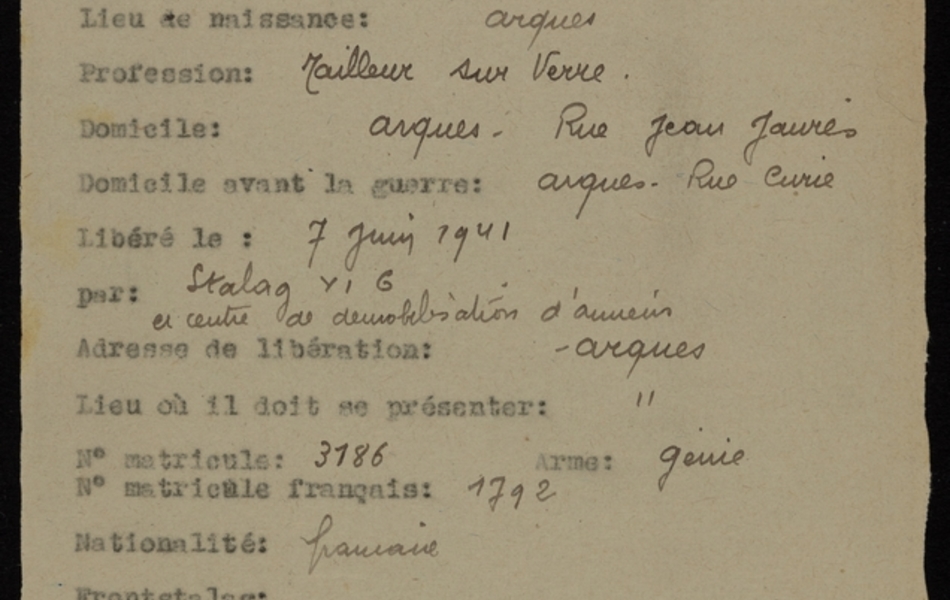 Lieu de naissance: arques
Profession: Tailleur sur Verre.
Domicile: arques - Rue Jean Jaurès
Domicile avant la guerre: arques - Rue Curie
Libéré le : 7 Juin 1941
par: Stalag VI G
et centre de demobilisation d'amiens
Adresse de libération: - arques
Lieu où il doit se présenter: "
N° matricule: 3186 Arme: génie
N° matricule français: 1792
Nationalité: francaise
Frontstalag: